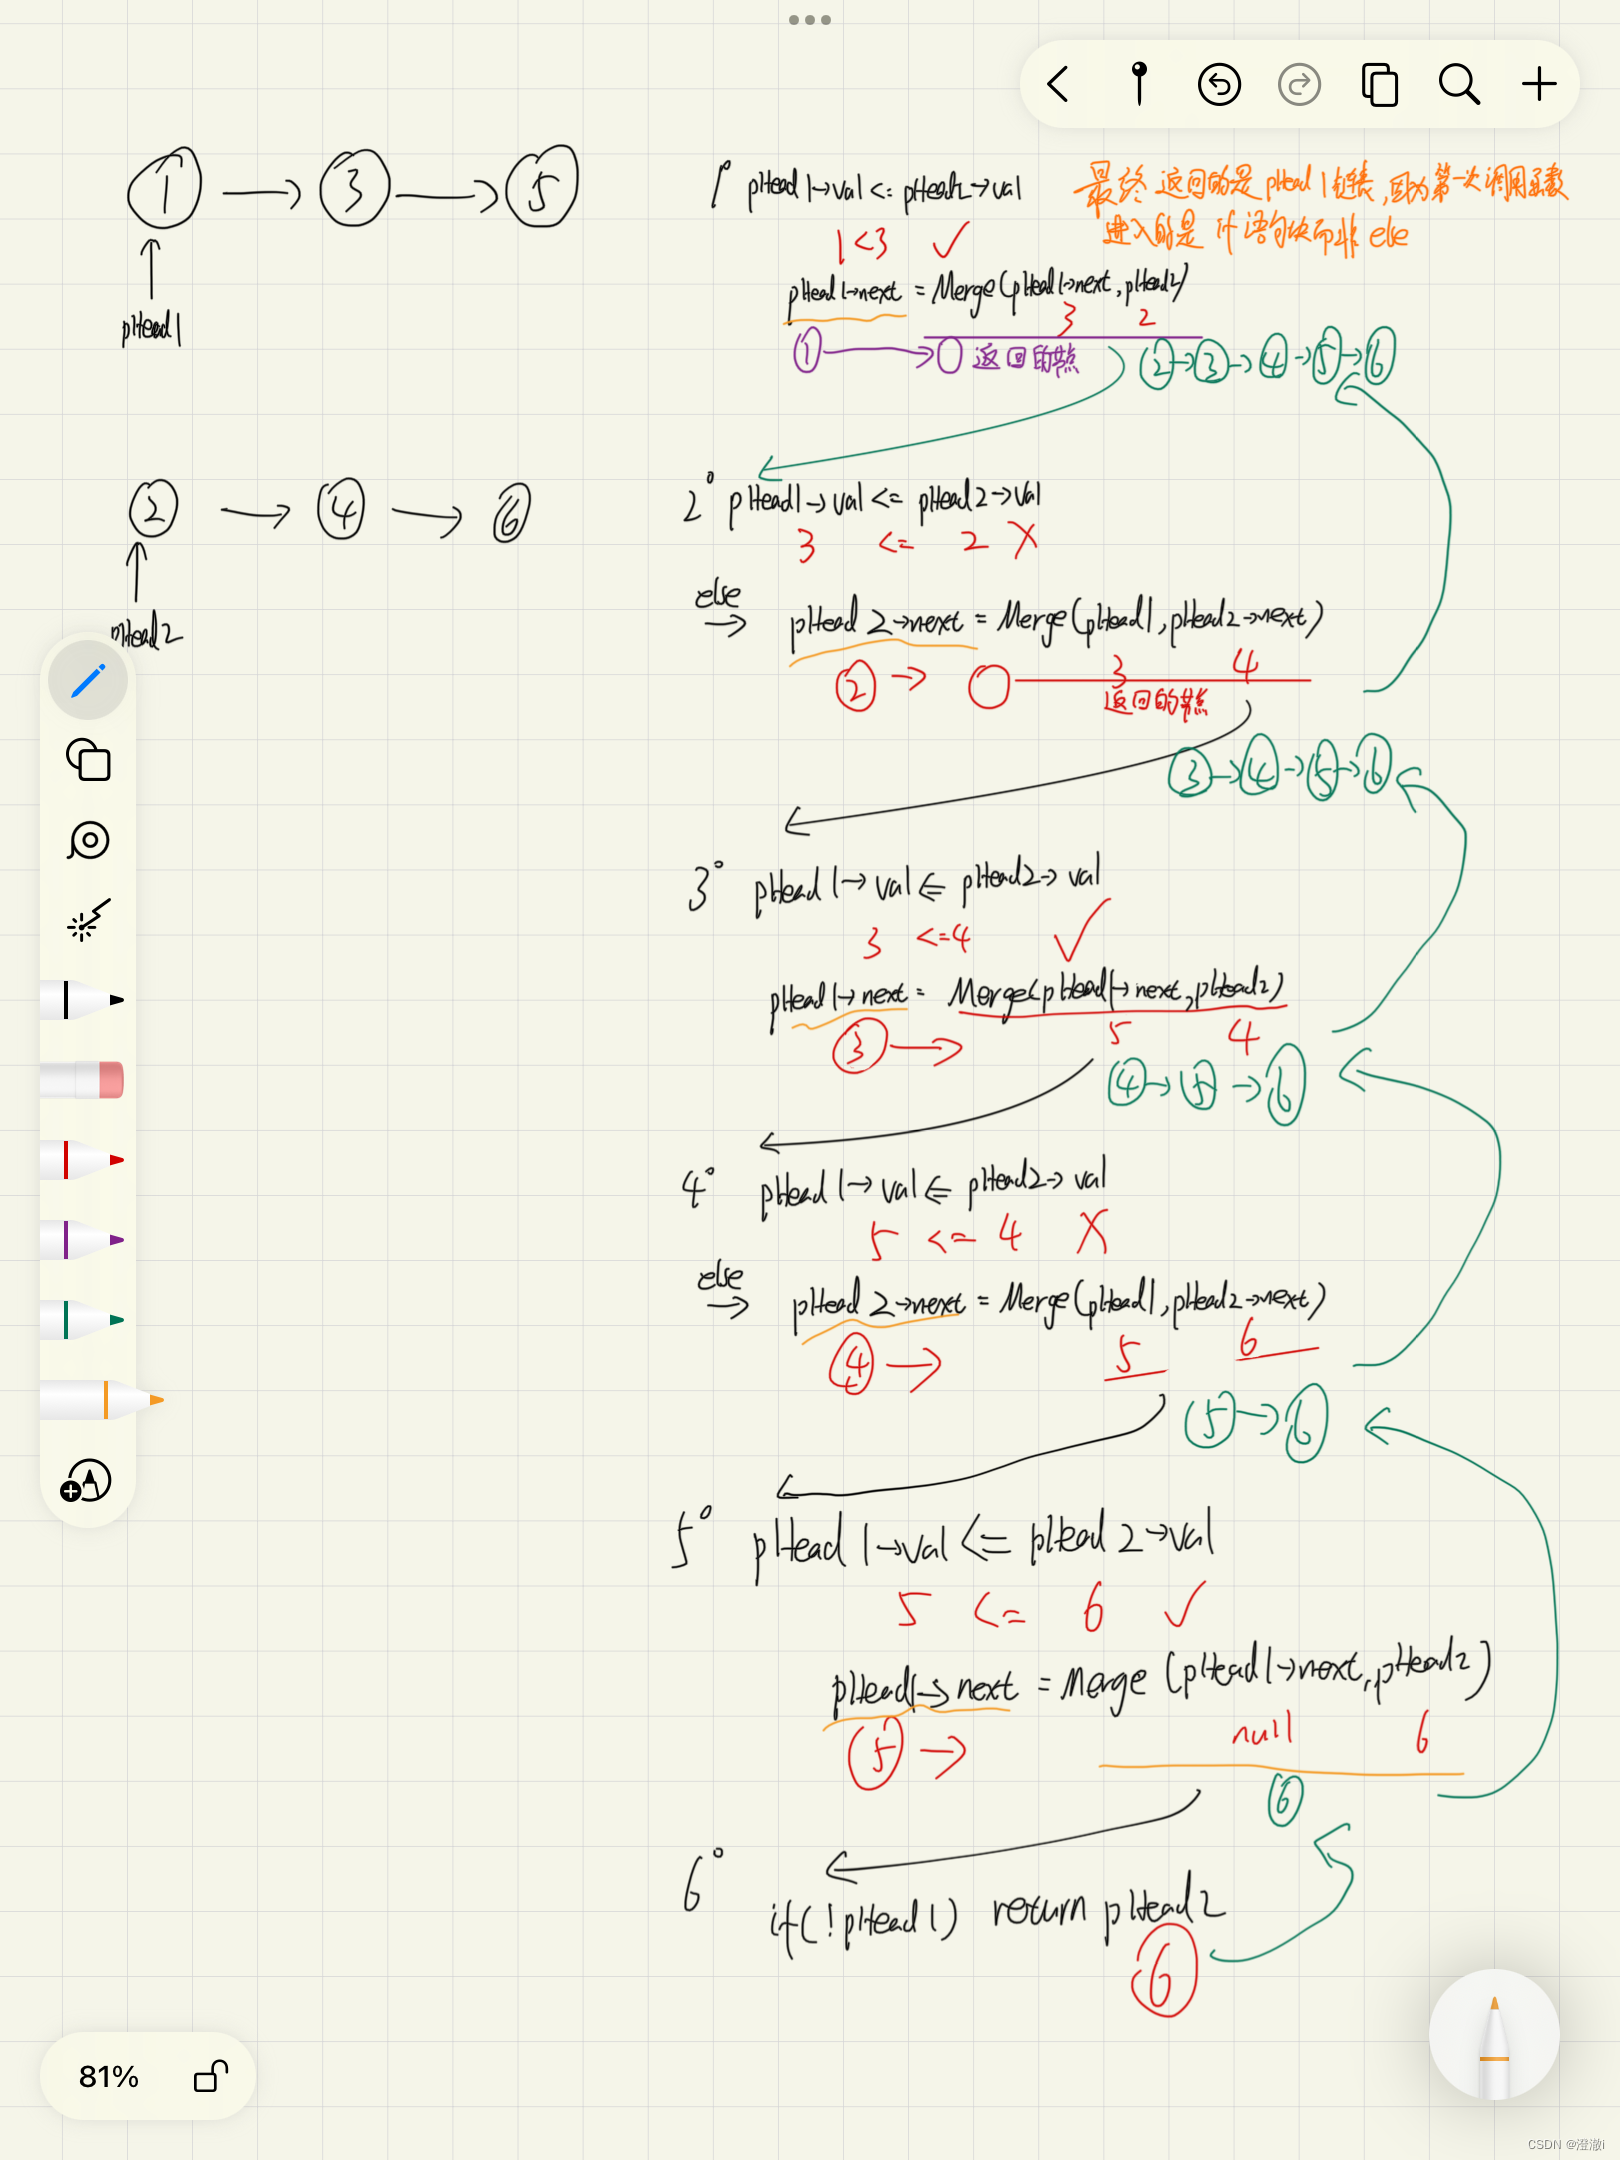 1 → 3 → 5
pHead1
2 → 4 → 6
pHead2
1° pHead1→val <= pHead2→val
1<3 ✓
最终返回的是pHead1链表,因为第一次调用函数
进入的是if语句块而非else
pHead1→next = Merge(pHead1→next, pHead2)
3 2
1 → 返回的节点
2→3→4→5→6
2° pHead1→val <= pHead2→val
3 <= 2 X
else
→ pHead2→next = Merge(pHead1, pHead2→next)
2 → 3 4
返回的节点
3→4→5→6
3° pHead1→val <= pHead2→val
3 <=4 ✓
pHead1→next = Merge(pHead1→next, pHead2)
3 → 5 4
4→5→6
4° pHead1→val <= pHead2→val
5 <= 4 X
else
→ pHead2→next = Merge(pHead1, pHead2→next)
4 → 5 6
5→6
5° pHead1→val <= pHead2→val
5 <= 6 ✓
pHead1→next = Merge(pHead1→next, pHead2)
5 → null 6
6
6° if(!pHead1) return pHead2
6
81%
CSDN @澄澈i